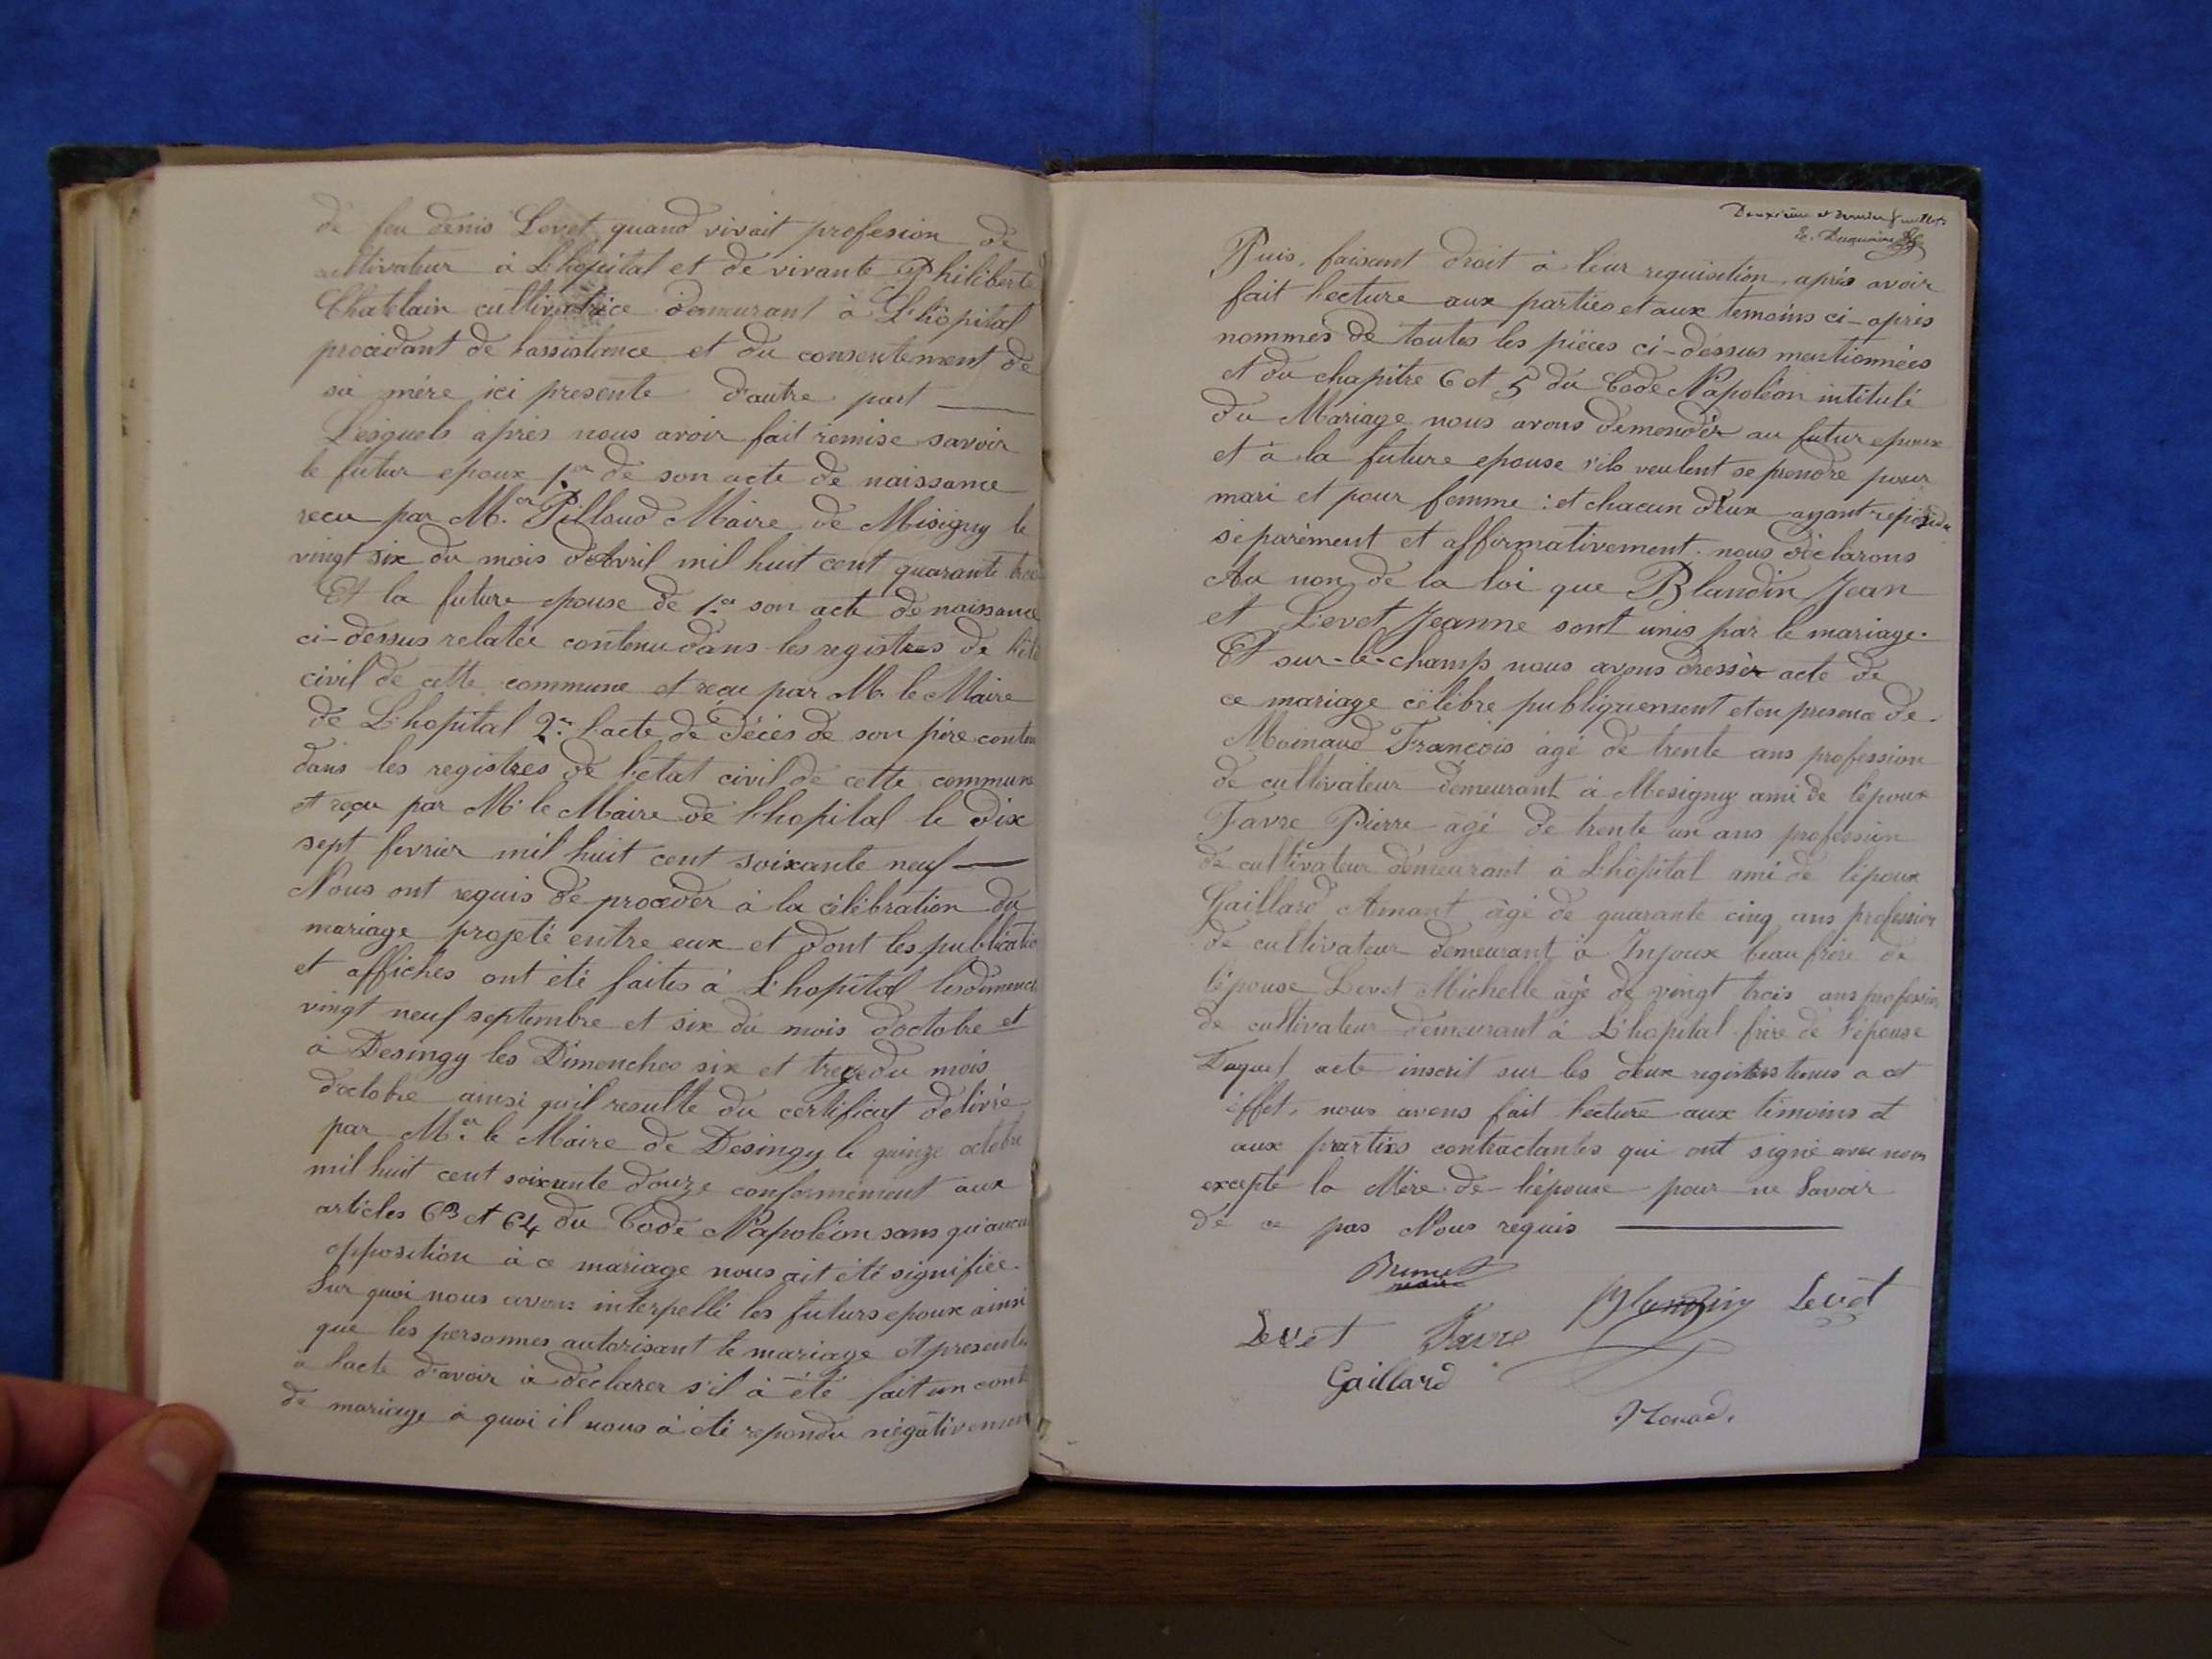 de feu denis Levet quand vivait profesion de
cultivateur à L'hopital et de vivante Philiberte
Chatelain cultivatrice demeurant à L'hôpital
procédant de l'assistance et du consentement de
sa mère ici presente d'autre part
Lesquels après nous avoir fait remise savoir
le futur epoux 1er de son acte de naissance
recu par M.er Pilloud Maire de Mésigny le
vingt six du mois d'Avril mil huit cent quarante
Et la future epouse de 1.er son acte de naissance
ci-dessus relatée contenu dans les registres de
civil de cette commune et reçu par Mr le Maire
de L'hopital 2.me l'acte de décès de son père
dans les registres de l'etat civil de cette commune
et reçu par Mr le Maire de l'hopital le dix
sept fevrier mil huit cent soixante neuf
Nous ont requis de proceder à la célébration du
mariage projeté entre eux et dont les
et affiches ont été faites à L'hopital les
vingt neuf septembre et six du mois d'octobre et
à Desingy les Dimenches six et treze du mois
d'octobre ainsi qu'il resulte du certificat delivré
par M.er le Maire de Desingy le quinze octobre
mil huit cent soixante douze conformement aux
articles 63 et 64 du Code Napoléon sans
opposition à ce mariage nous ait été signifiée.
Sur quoi nous avons interpellé les futurs epoux ainsi
que les personnes autorisant le mariage et
à l'acte d'avoir à déclarer s'il à été fait un
de mariage à quoi il nous à été repondu
Deuxième et dernier
Puis, faisant droit à leur requisition, après avoir
fait lecture aux parties et aux temoins ci-après
nommés de toutes les pièces ci-dessus mentionnées
et du chapitre 6 et 5 du Code Napoléon intitulé
du Mariage nous avons demender au futur epoux
et à la future epouse s'ils veulent se prendre pour
mari et pour femme : et chacun d'eux ayant répondu
séparément et affirmativement. nous déclarons
Au non de la loi que Blandin Jean
et Levet Jeanne sont unis par le mariage.
Et sur-le-champs nous avons dresser acte de
ce mariage célèbre publiquement et en presence de
Moinaud François âgé de trente ans profession
de cultivateur demeurant à Mesigny ami de l'époux
Favre Pierre âgé de trente un ans profession
de cultivateur demeurant à L'hôpital ami de l'époux
Gaillard Amant âgé de quarante cinq ans profession
de cultivateur demeurant à Injoux beau frère de
l'épouse Levet Michelle âgé de vingt trois ans profession
de cultivateur demeurant à L'hopital frère de l'épouse
Duquel acte inscrit sur les deux registres tenus a cet
éffet, nous avons fait lecture aux témoins et
aux parties contractantes qui ont signé avec nous
excepté la Mère de l'épouse pour ne savoir
de ce pas Nous requis
Brunet
maire
Blandin Levet
Levet Favre
Gaillard